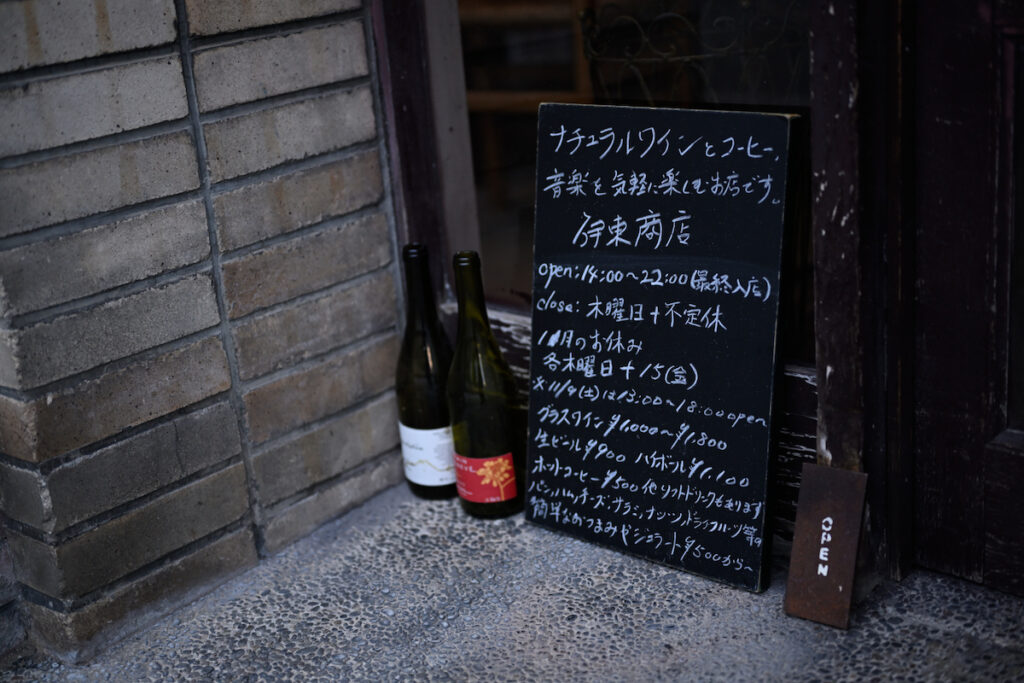 ナチュラルワインとコーヒー、
音楽を気軽に楽しむお店です。
伊東商店
open:14:00〜22:00(最終入店)
close:木曜日+不定休
11月のお休み
各木曜日+15(金)
※11/9(土)は13:00〜18:00open
グラスワイン¥1,000〜¥1,800
生ビール¥900 ハイボール¥1,100
ホットコーヒー¥500他ソフトドリンクもあります
パン、ハム、チーズ、サラミ、ナッツ、ドライフルーツ等の
簡単なおつまみやジェラート¥500から〜
OPEN